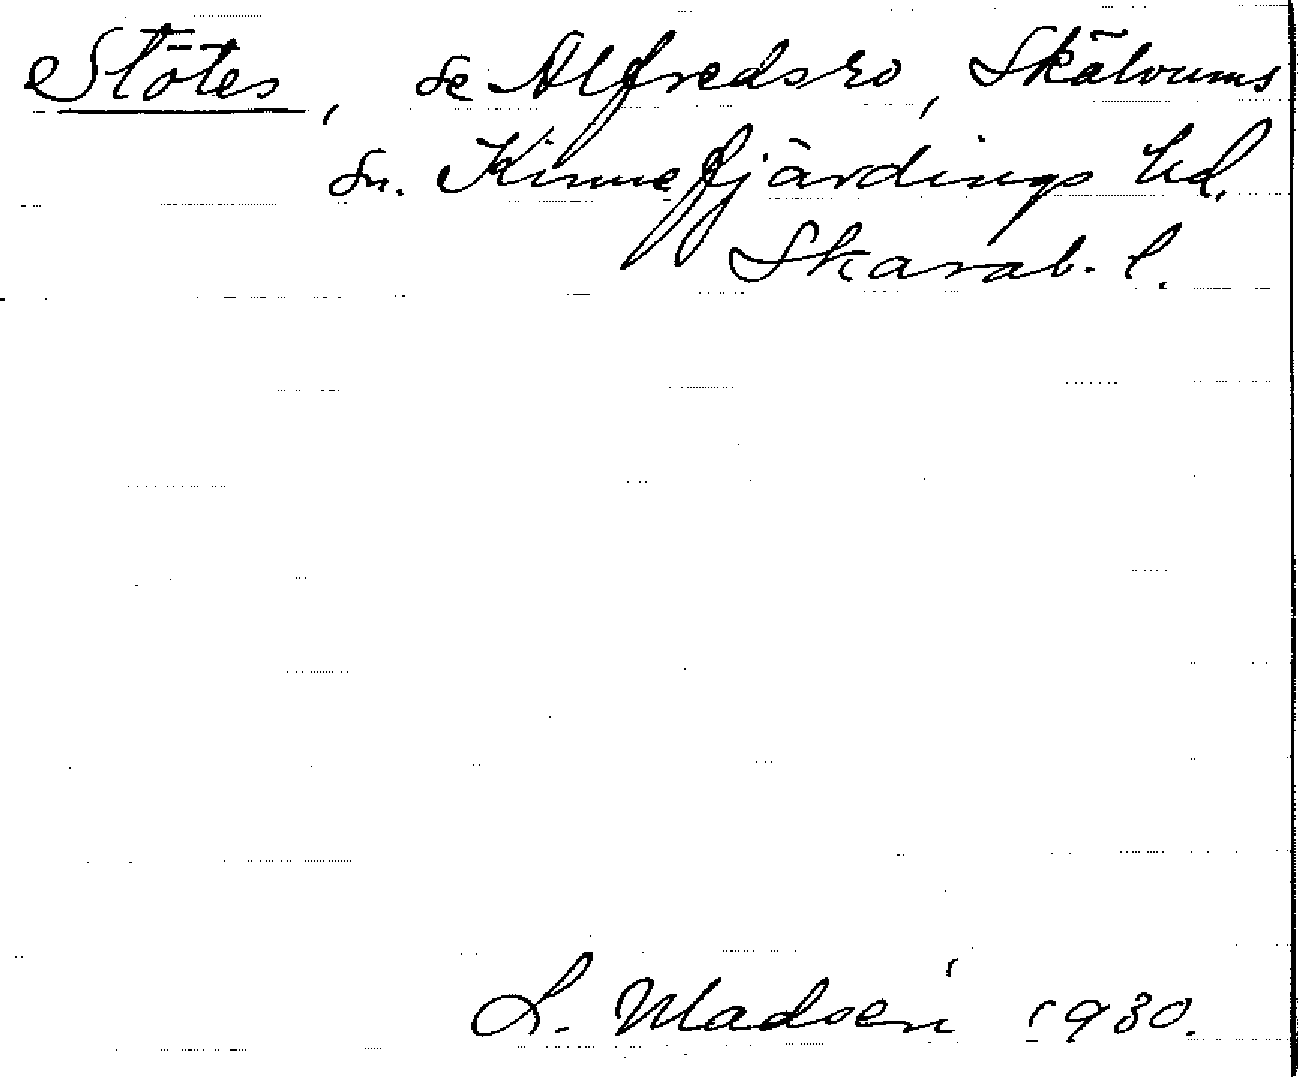 Stötes, se Alfredsro, Skälvums
sn. Kinnefjärdings hd.
Skarab. l.
L. Madsén 1930.